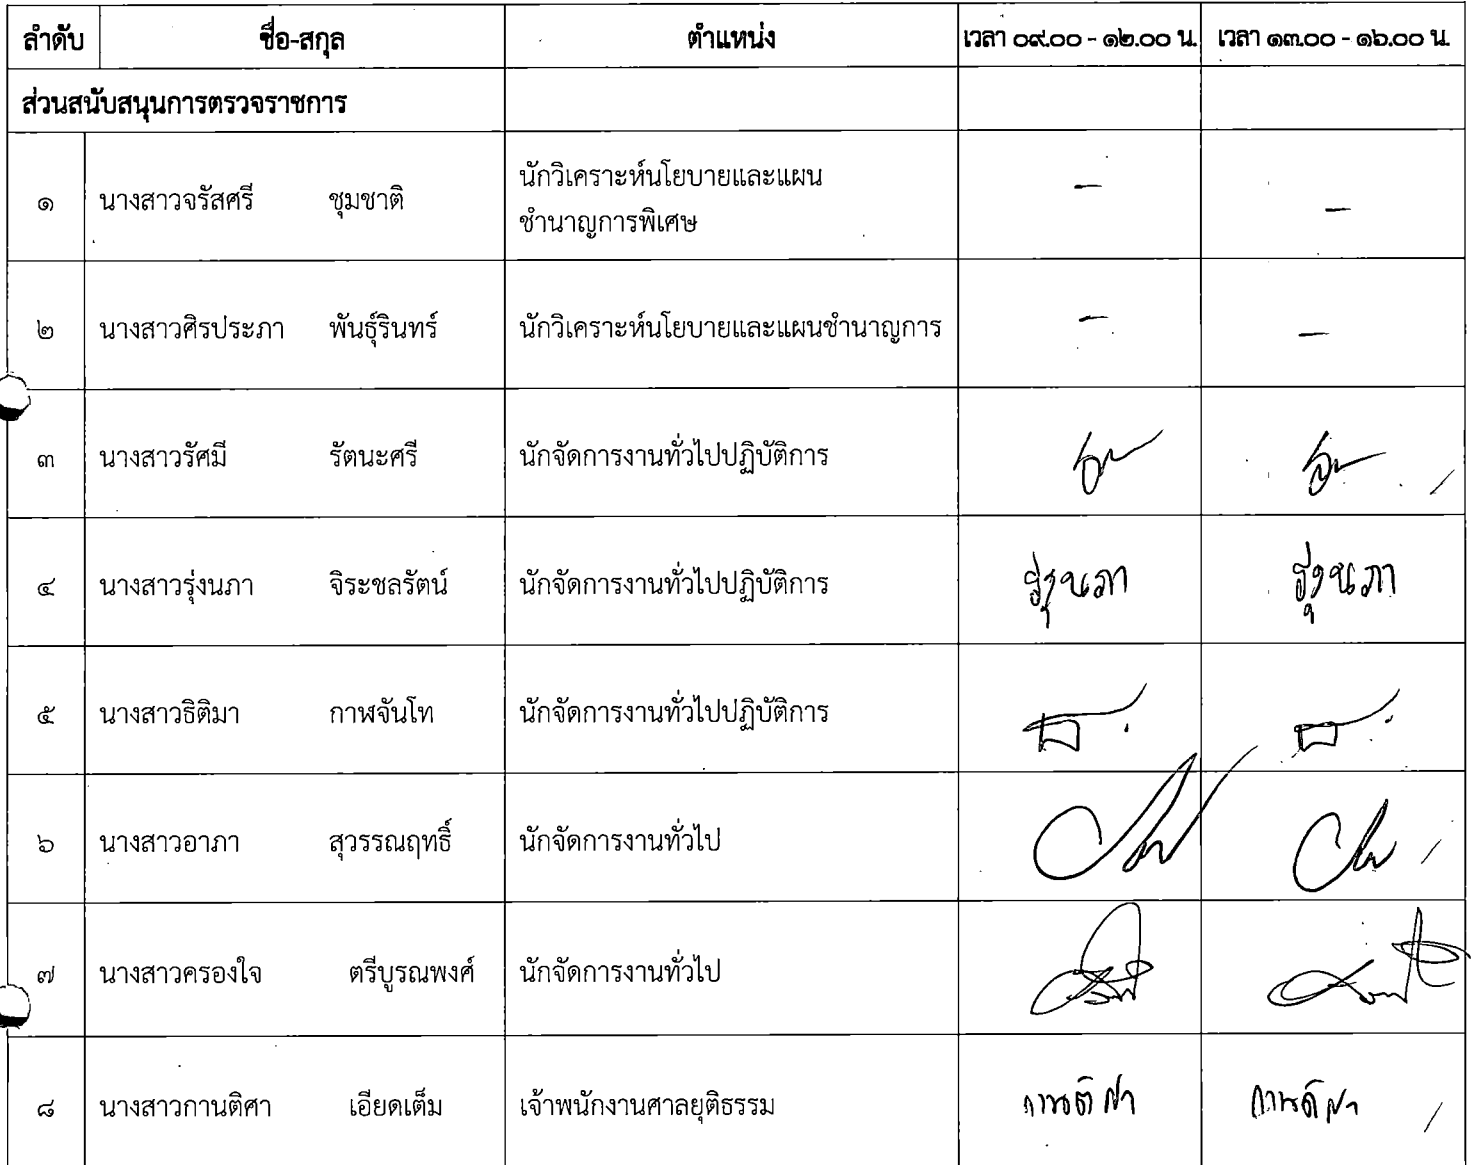 ลำดับ ชื่อ-สกุล ตำแหน่ง เวลา ๐๙.๐๐ - ๑๒.๐๐ น. เวลา ๑๓.๐๐ - ๑๖.๐๐ น.
ส่วนสนับสนุนการตรวจราชการ
๑ นางสาวจรัสศรี ชุมชาติ นักวิเคราะห์นโยบายและแผน - -
ชำนาญการพิเศษ
๒ นางสาวศิรประภา พันธุ์รินทร์ นักวิเคราะห์นโยบายและแผนชำนาญการ - -
๓ นางสาวรัศมี รัตนะศรี นักจัดการงานทั่วไปปฏิบัติการ
๔ นางสาวรุ่งนภา จิระชลรัตน์ นักจัดการงานทั่วไปปฏิบัติการ รุ่งนภา รุ่งนภา
๕ นางสาวธิติมา กาฬจันโท นักจัดการงานทั่วไปปฏิบัติการ
๖ นางสาวอาภา สุวรรณฤทธิ์ นักจัดการงานทั่วไป
๗ นางสาวครองใจ ตรีบูรณพงศ์ นักจัดการงานทั่วไป
๘ นางสาวกานติศา เอียดเต็ม เจ้าพนักงานศาลยุติธรรม กานติศา กานติศา